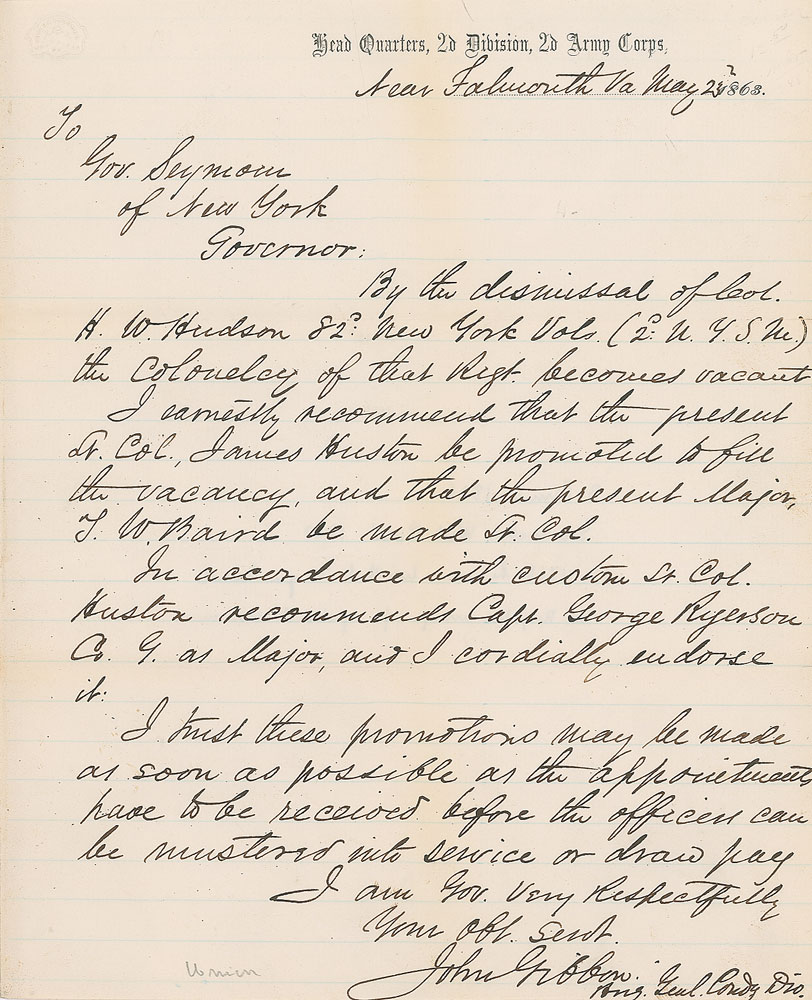 Head Quarters, 2d Division, 2d Army Corps,
Near Falmouth Va May 1863.
To
Gov. Seymour
of New York
Governor:
By the dismissal of Col.
H. W. Hudson 82d New York Vols. (2d N. Y. S. M.)
the Colonelcy of that Regt. becomes vacant
I earnestly recommend that the present
Lt. Col., James Huston be promoted to fill
the vacancy, and that the present Major,
T. W. Baird be made Lt. Col.
In accordance with custom Lt. Col.
Huston recommends Capt. George Ryerson
Co. G. as Major, and I cordially endorse
it.
I trust these promotions may be made
as soon as possible as the appointments
have to be received before the officers can
be mustered into service or draw pay
I am Gov. Very Respectfully
Your Obt. Servt.
John Gibbon.
Brig. Genl. Comdg Div.
Union